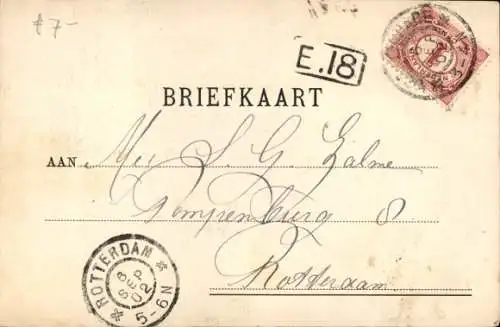 £ 7-
E.18
BRIEFKAART
AAN Mej S. G. Zalme
Pompenburg 8
Rotterdam
ROTTERDAM
8
SEP
02
5-6N